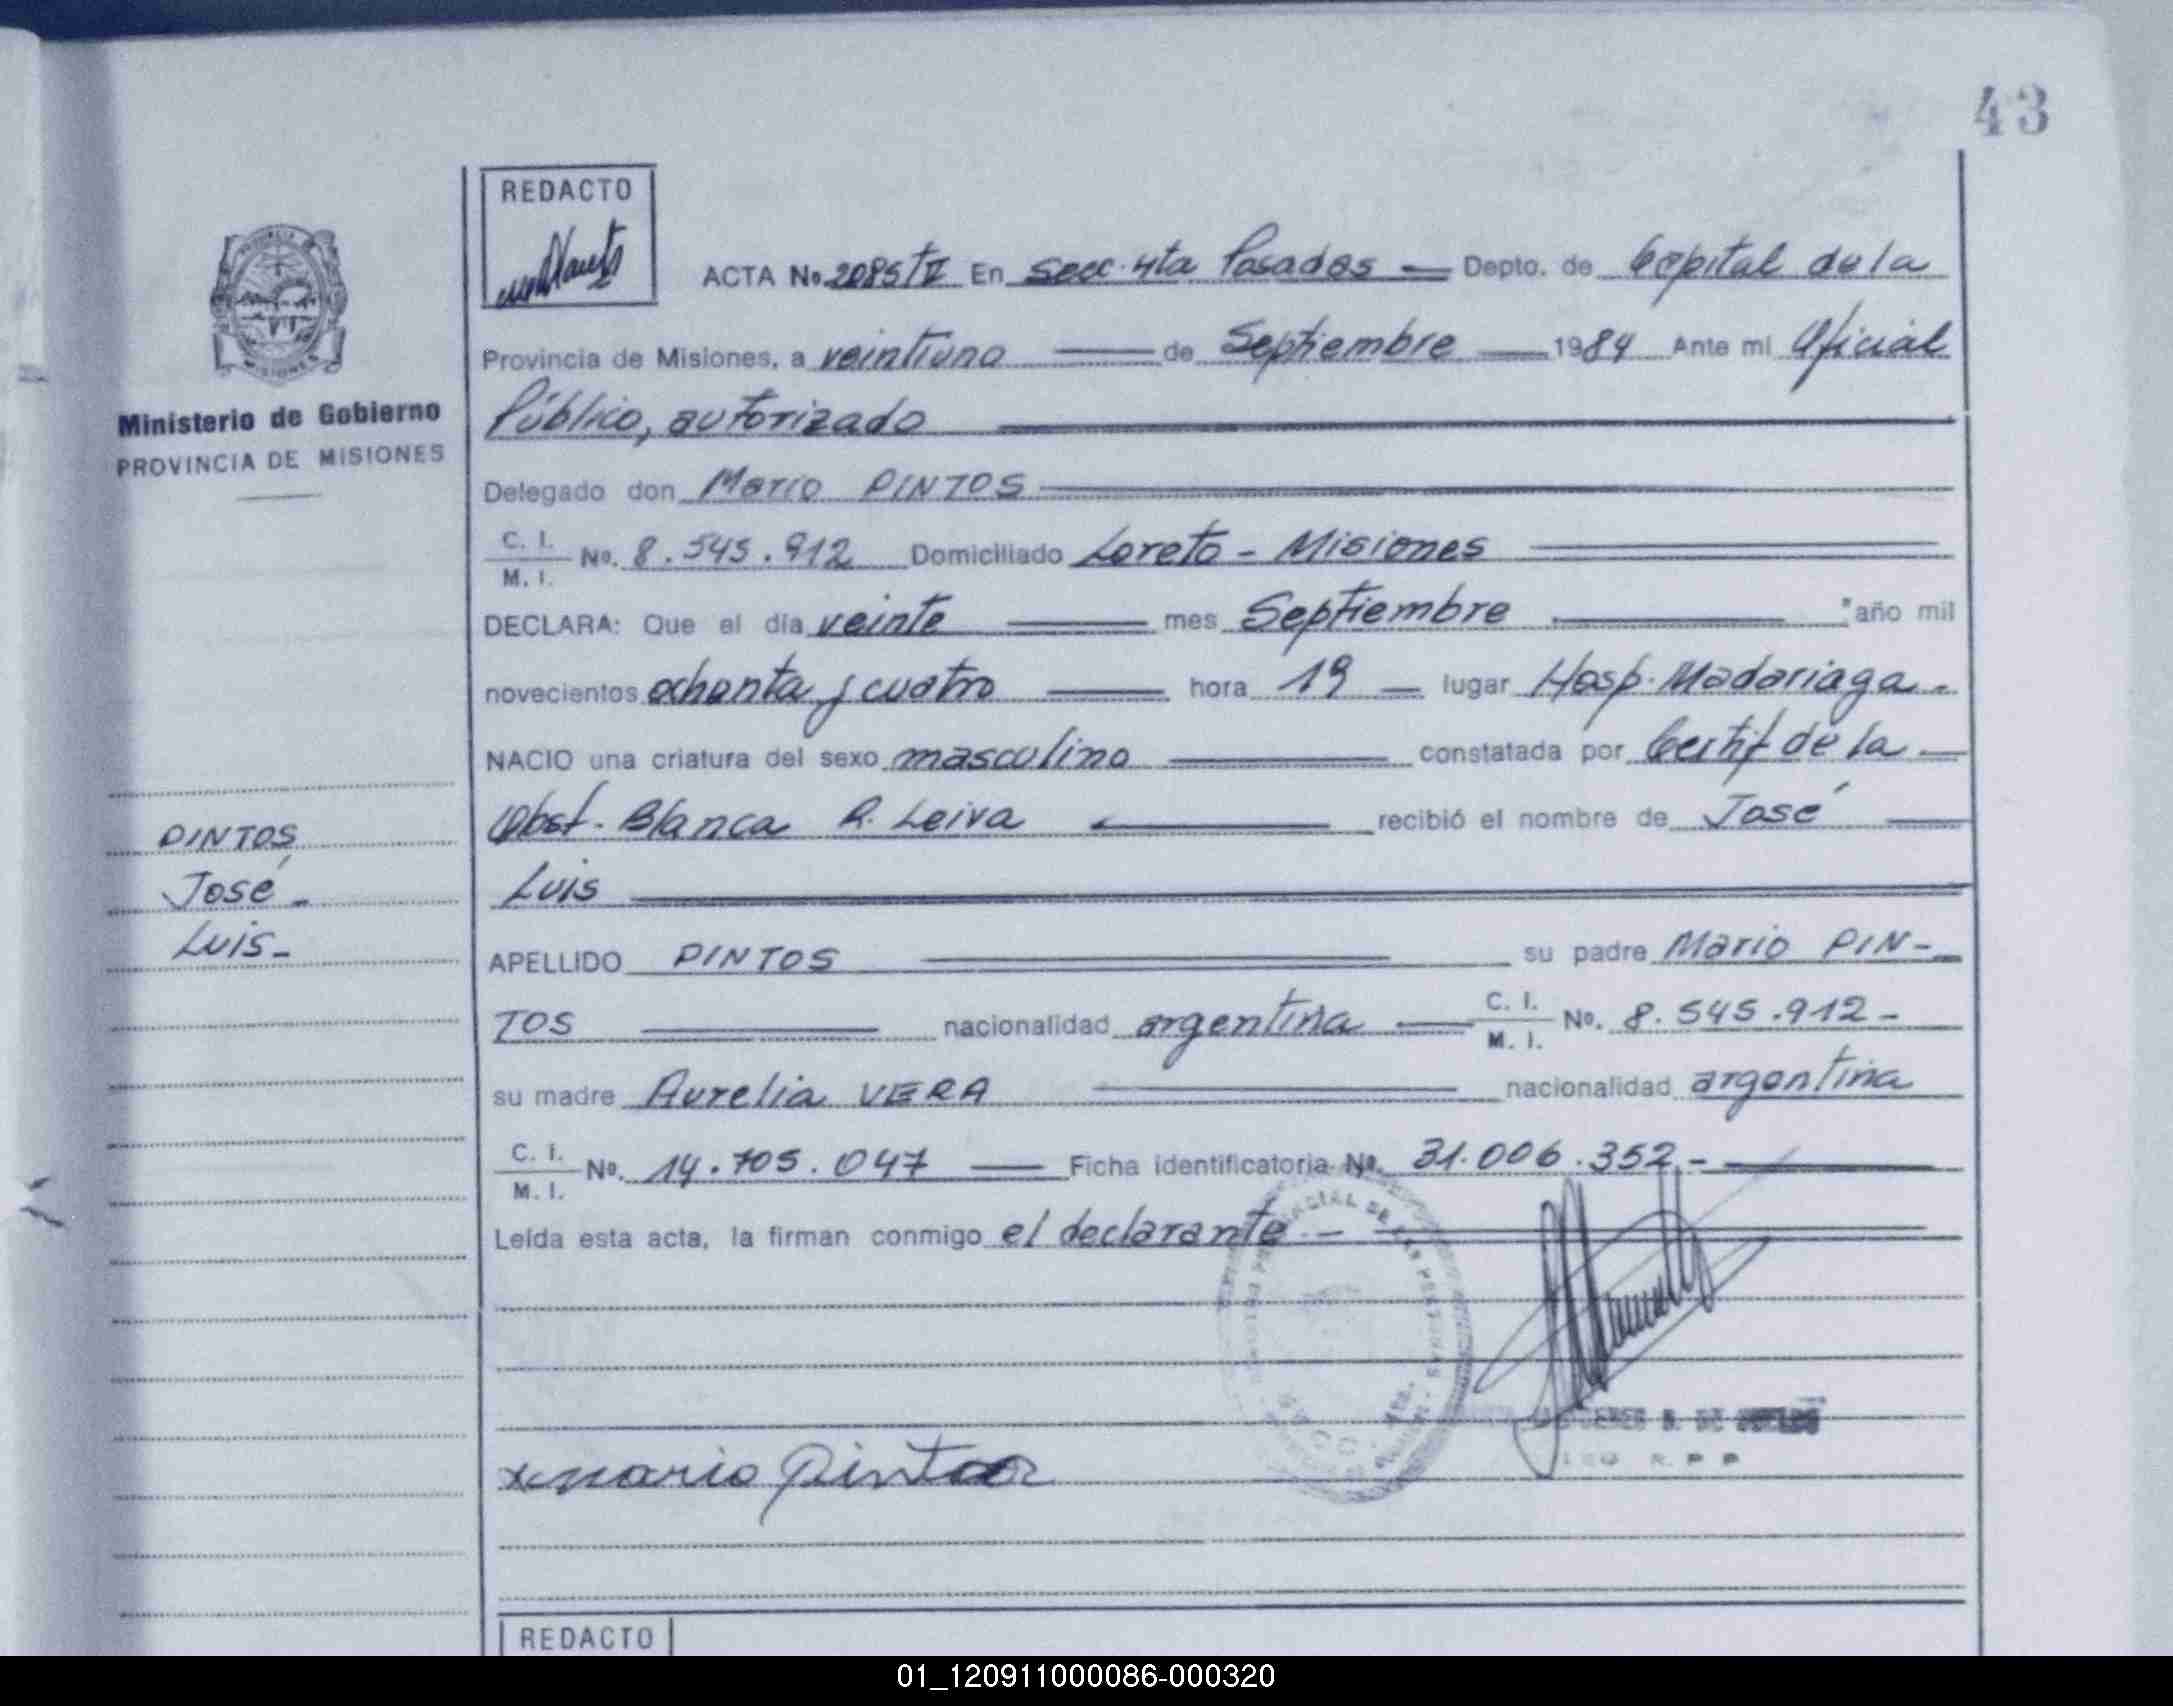 43
REDACTO
ACTA No. 2085/II En Secc. 4ta Posadas Depto. de Capital de la
Provincia de Misiones, a veintiuno de Septiembre 1984 Ante mi Oficial
Público, autorizado
Delegado don Mario PINTOS
C. I. M. I. No. 8.545.912 Domiciliado Loreto - Misiones
DECLARA: Que el día veinte mes Septiembre año mil
novecientos ochenta y cuatro hora 19 lugar Hosp. Madariaga.
NACIO una criatura del sexo masculino constatada por Certif de la
Obst. Blanca R. Leiva recibió el nombre de José
Luis
APELLIDO PINTOS su padre Mario PIN-
TOS nacionalidad argentina C. I. M. I. No. 8.545.912-
su madre Aurelia VERA nacionalidad argentina
C. I. M. I. No. 14.705.047 Ficha identificatoria No. 31.006.352.-
Leída esta acta, la firman conmigo el declarante.-
x mario Pintos
REDACTO
PROVINCIA
MISIONES
Ministerio de Gobierno
PROVINCIA DE MISIONES
PINTOS
José -
Luis -
01_120911000086-000320